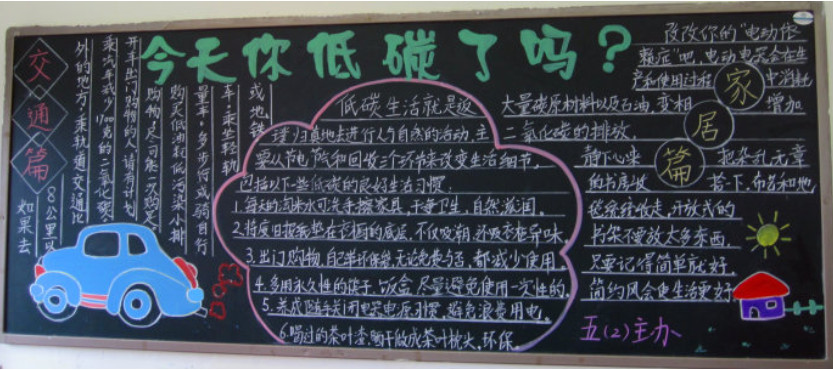 今天你低碳了吗？
交通篇
开车出门购物的人，请有计划
购物，尽可能一次购足。
购买低油耗低污染小排
量车，多步行或骑自行
车，乘坐轻轨
或地铁
如果去
8公里以
外的地方，乘轨道交通比
乘汽车减少1700克的二氧化碳
低碳生活就是返
璞归真地去进行人与自然的活动，主
要从节电 节气和回收三个环节来改变生活细节，
包括以下一些低碳的良好生活习惯：
1.每天的淘米水可洗手擦家具，干净卫生，自然滋润。
2.将废旧报纸垫在衣橱的底层，不仅吸潮，还吸衣柜异味。
3.出门购物，自己带环保袋，无论免费与否，都减少使用
4.多用永久性的筷子、饭盒，尽量避免使用一次性的。
5.养成随手关闭电器电源习惯，避免浪费用电。
6.喝过的茶叶渣，晒干做成茶叶枕头，环保。
家居篇
改改你的“电动依
赖症”吧，电动电器会在生
产和使用过程中消耗
大量碳原材料以及石油，变相增加
二氧化碳的排放。
静下心来 把杂乱无章
的书房收拾一下，布艺和地
毯统统收走，开放式的
书架不要放太多东西，
只要记得简单就好。
简约风会使生活更好
五（2）主办